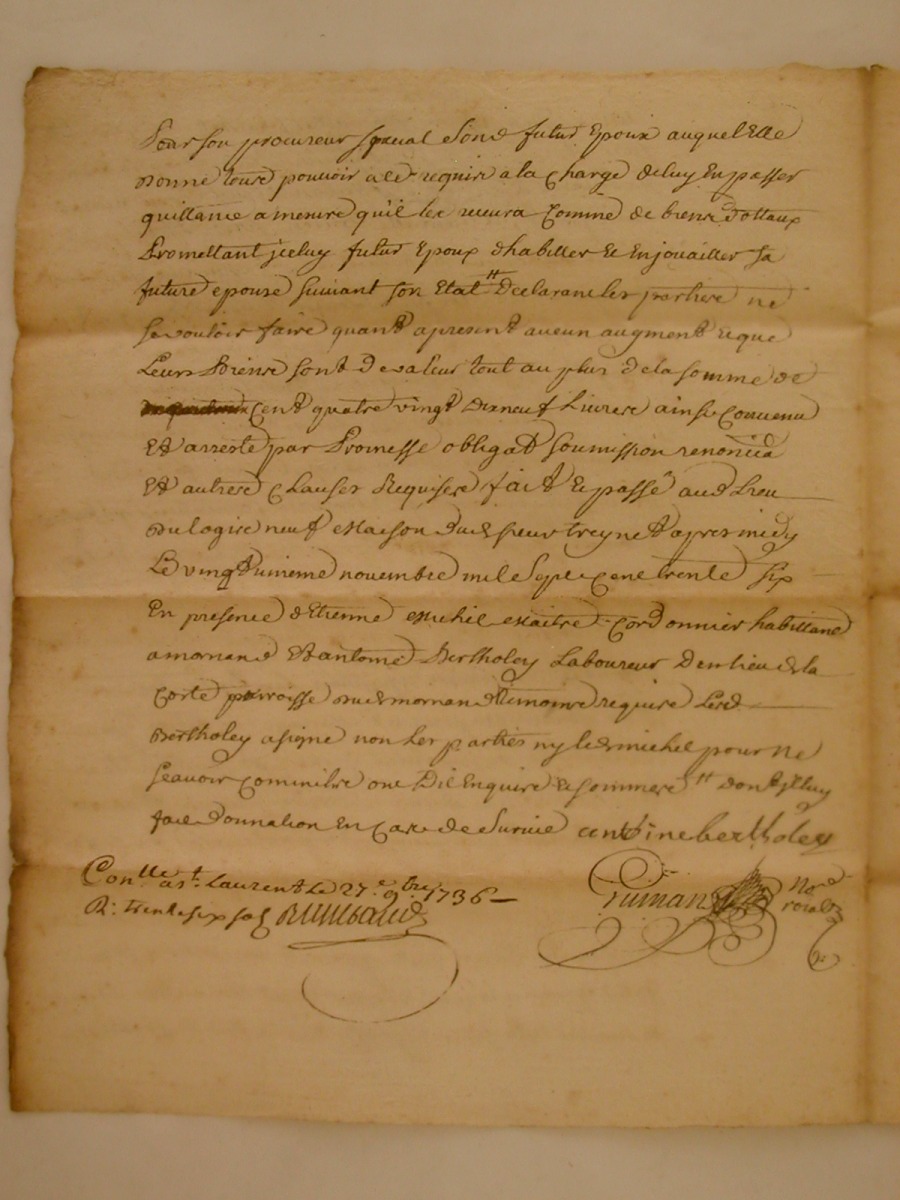 Pour son procureur special sond futur Epoux auquel Elle
donne tous pouvoir a les require a la Charge deluy En passer
quittance a mesure quil les recevra Comme de biens dottaux
Promettant jceluy futur Epoux d'habiller Et Enjouailler sa
future epouse suivant son Etat tt declarant les parties ne
se vouloir faire quant apresent aucun augment et que
Leurs Biens sont de valeur tout au plus de la somme de
Cent quatre vingt Dixneuf Livres ainsi Convenu
Et arresté par Promesse obligat soumission renoncia
Et autres Clauses Requises fait Et passé aud Lieu
du logis neuf Maison dud sieur treynet apres midy
Le vingt unieme novembre mil Sept Cent trente six
En presence d'Etienne Michel Maitre Cordonnier habitant
a mornand Et antoine Bertholey Laboureur du lieu de la
Corte parroisse dud mornand temoins requis Led
Bertholey a signé non Les parties ny led michel pour ne
Scavoir Comme ils ont Dit Enquis Et sommes tt dont
fait Donnation En Cas de Survie antoine bertholey
Conlle a St. Laurent Le 27e 9bre 1736
R: trente six sols
No.e roial